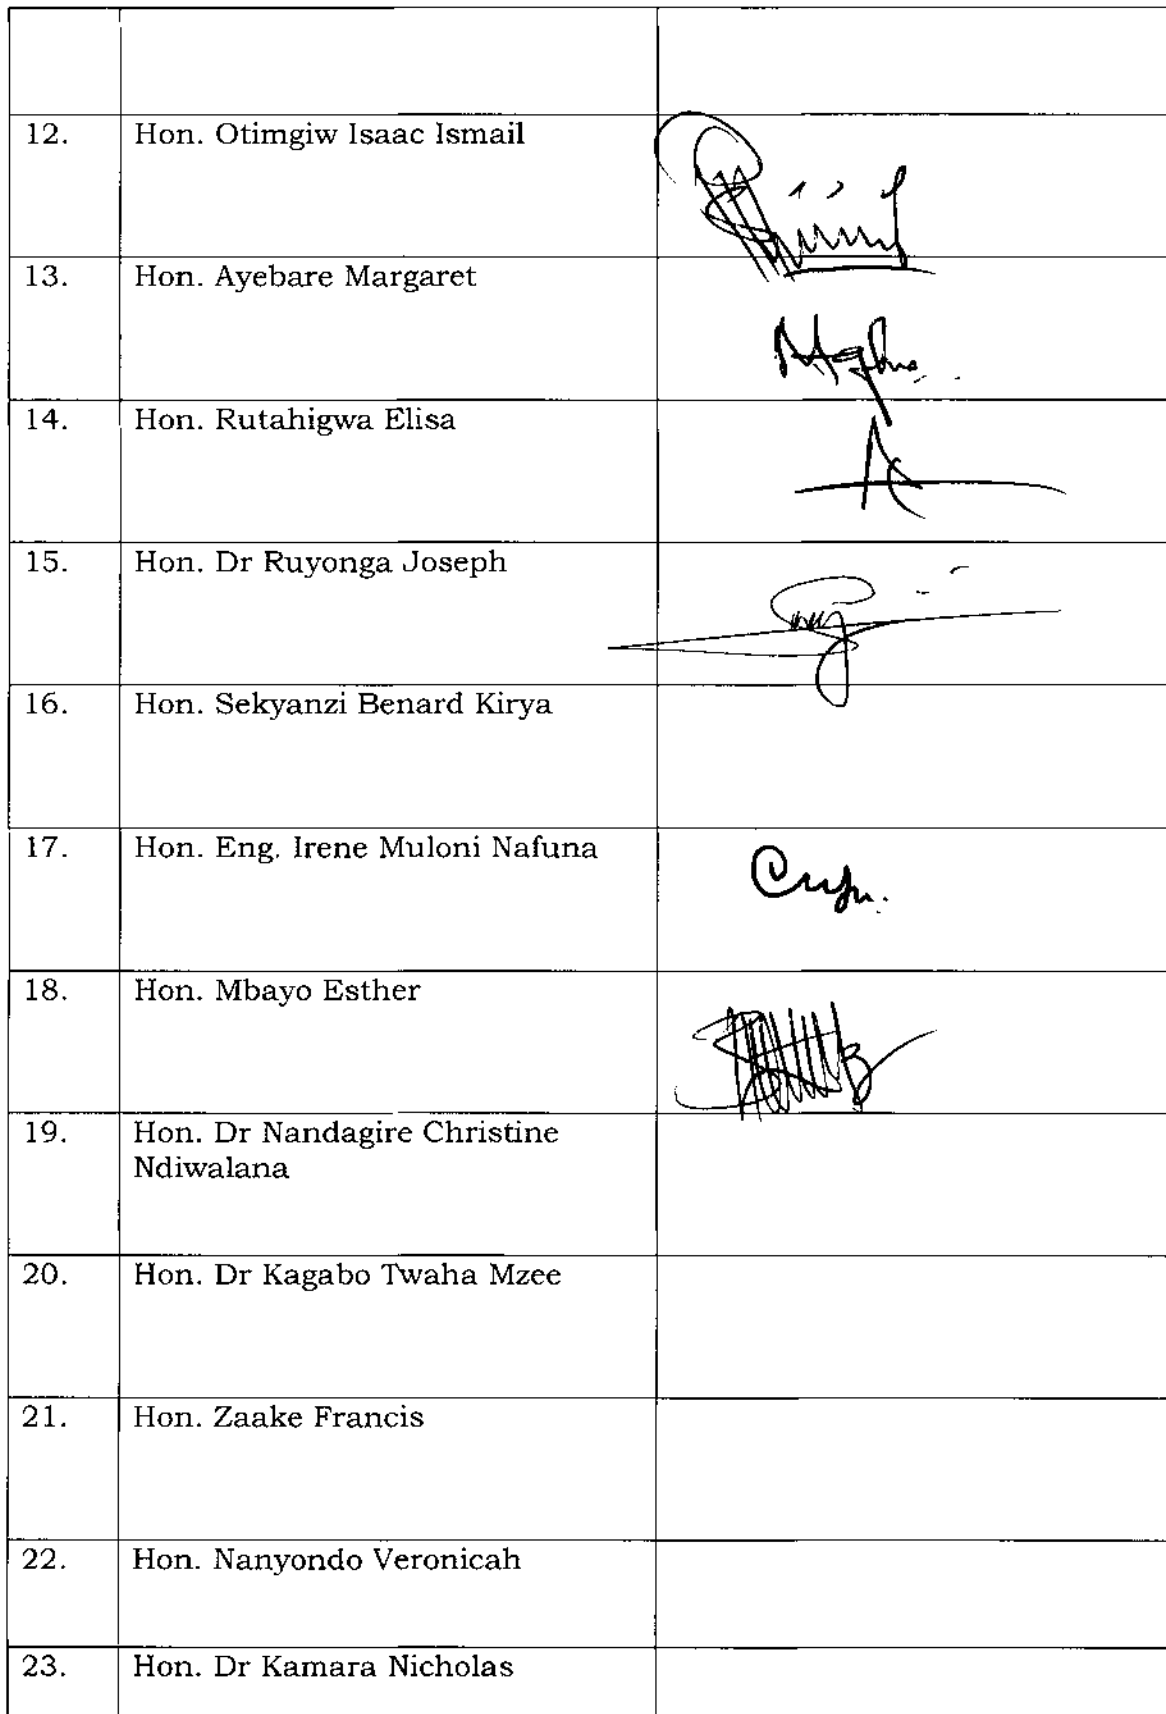 12. Hon. Otimgiw Isaac Ismail
13. Hon. Ayebare Margaret
14. Hon. Rutahigwa Elisa
15. Hon. Dr Ruyonga Joseph
16. Hon. Sekyanzi Benard Kirya
17. Hon. Eng. Irene Muloni Nafuna
18. Hon. Mbayo Esther
19. Hon. Dr Nandagire Christine
Ndiwalana
20. Hon. Dr Kagabo Twaha Mzee
21. Hon. Zaake Francis
22. Hon. Nanyondo Veronicah
23. Hon. Dr Kamara Nicholas